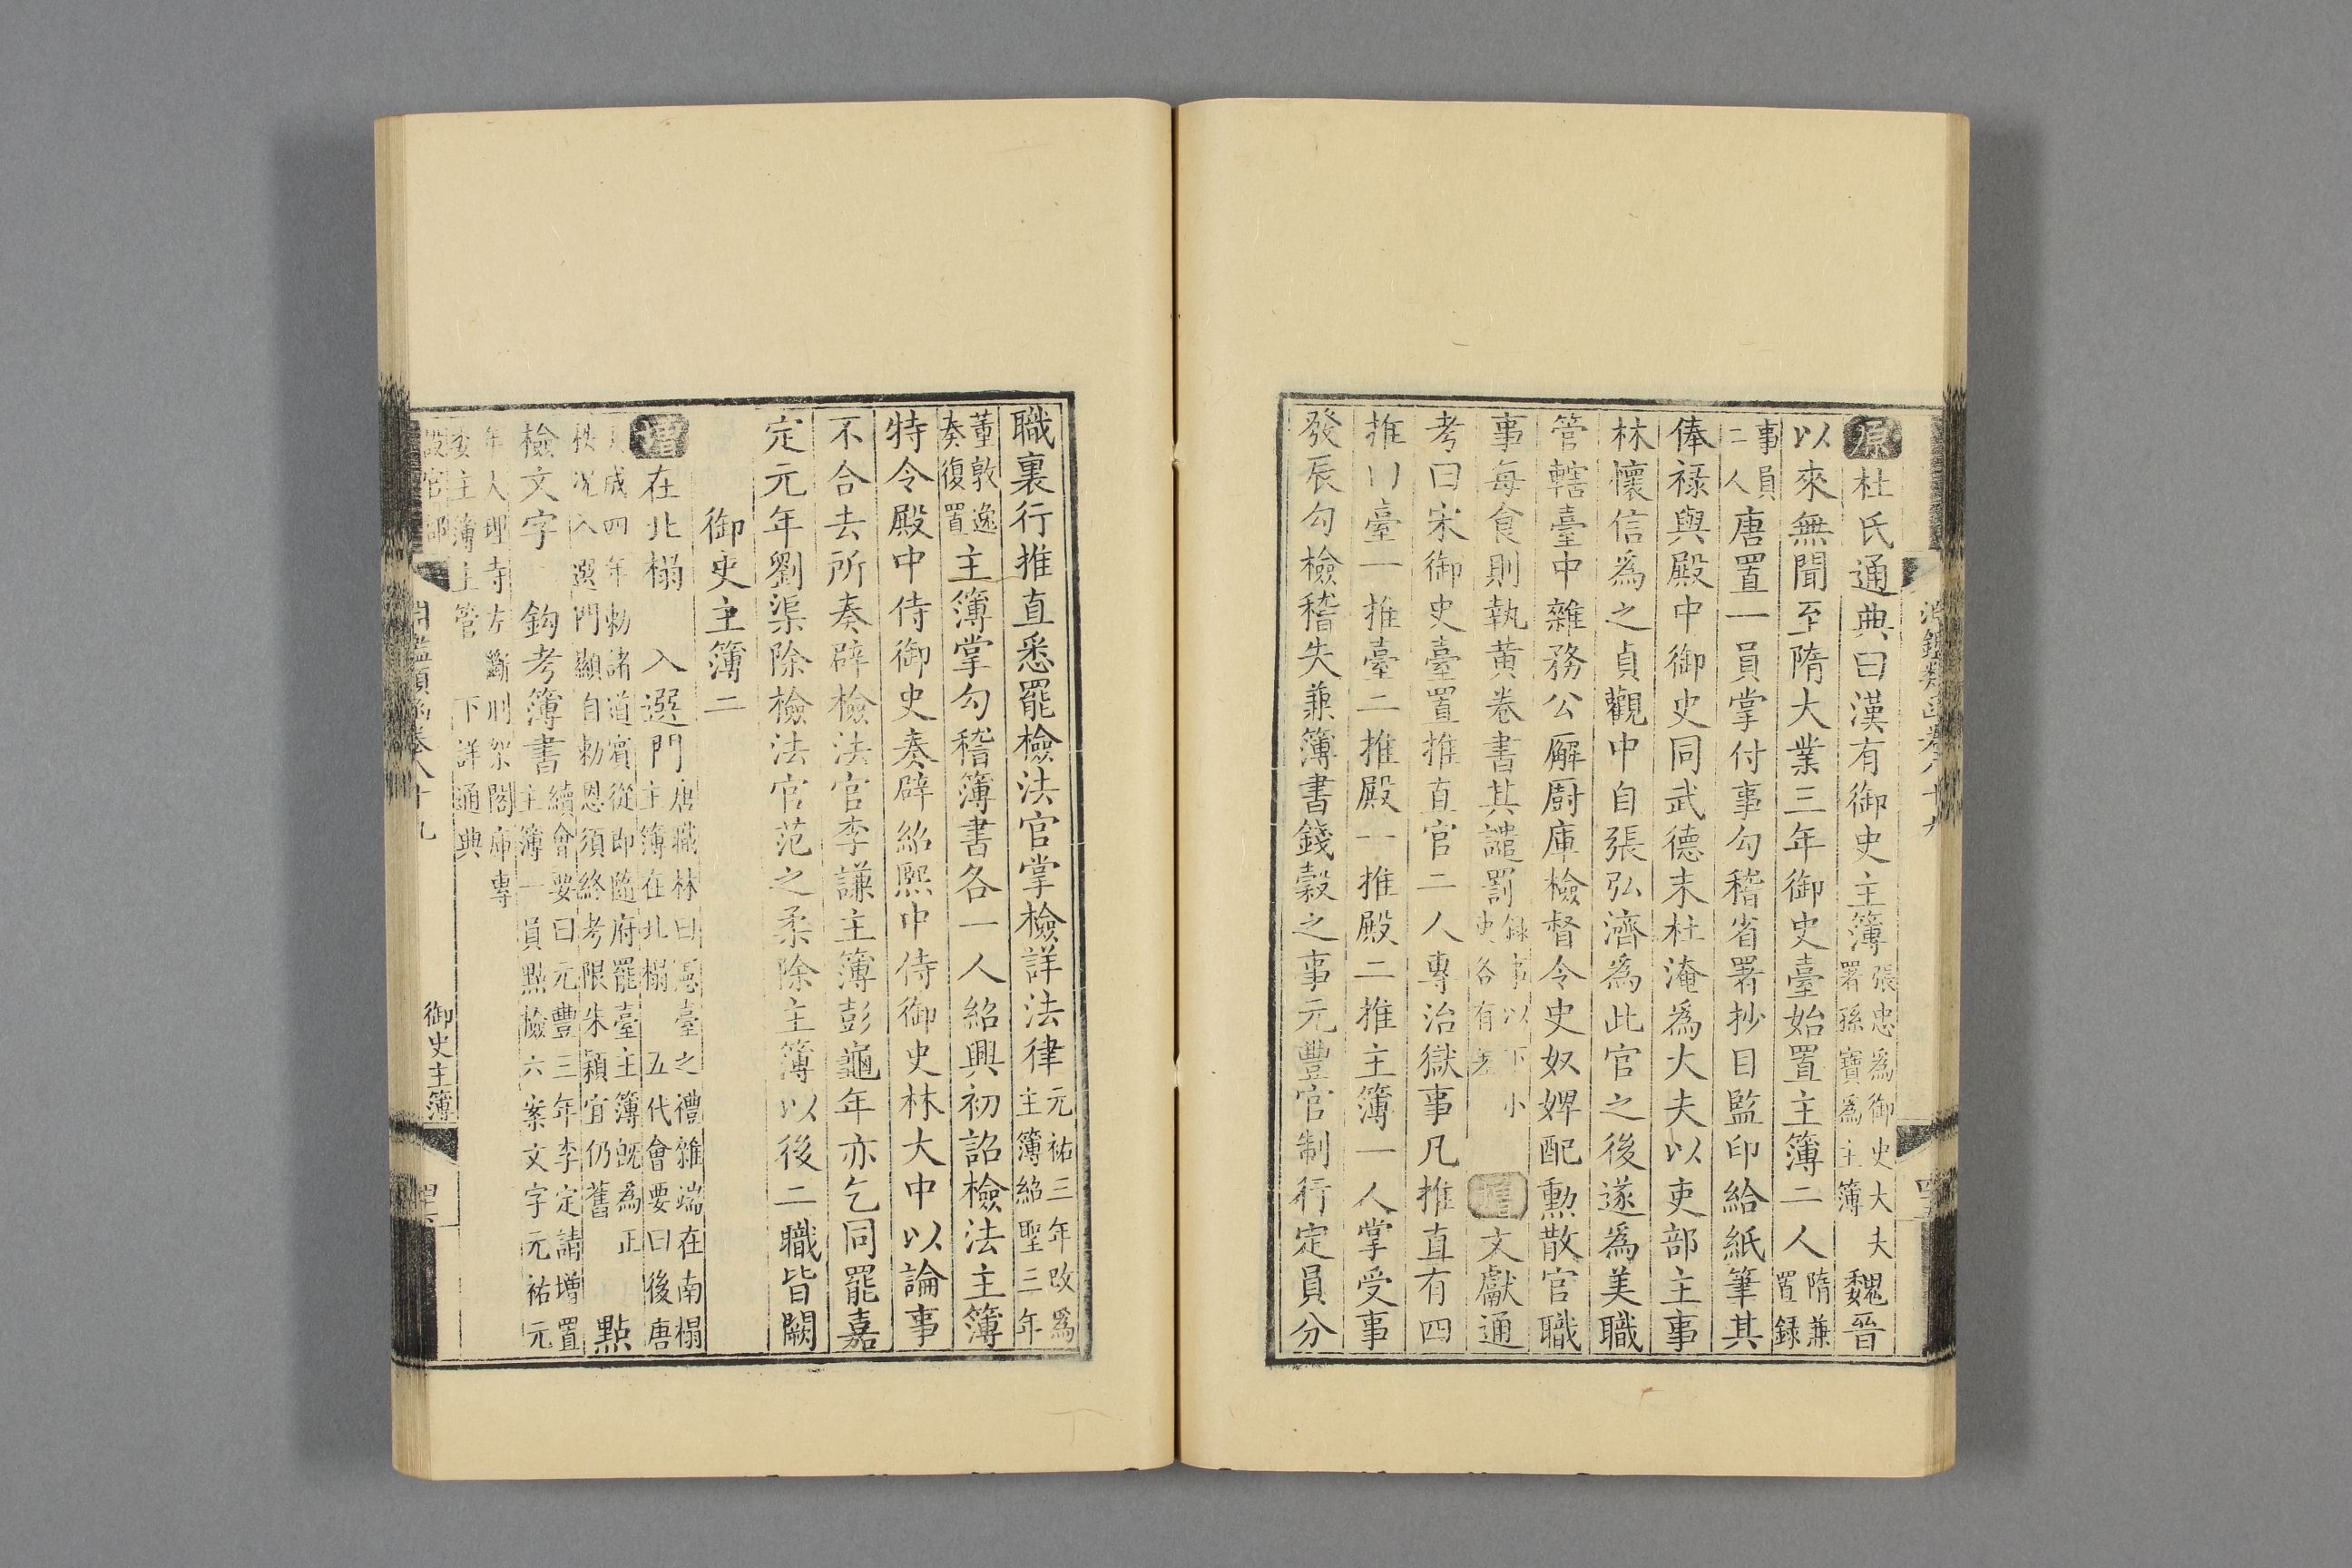 原杜氏通典曰漢有御史主簿張忠爲御史大夫署孫寶爲主簿魏晉
以來無聞至隋大業三年御史臺始置主簿二人隋兼置録
事員二人唐置一員掌付事勾稽省署抄目監印給紙筆其
俸禄與殿中御史同武德末杜淹爲大夫以吏部主事
林懷信爲之貞觀中自張弘濟爲此官之後遂爲美職
管轄臺中雜務公廨厨庫檢督令史奴婢配勲散官職
事每食則執黄卷書其譴罰録事以下小吏各有差增文獻通
考曰宋御史臺置推直官二人專治獄事凡推直有四
推曰臺一推臺二推殿一推殿二推主簿一人掌受事
發辰勾檢稽失兼簿書錢穀之事元豐官制行定員分
淵鑑類函卷八十九
職裏行推直悉罷檢法官掌檢詳法律元祐三年改爲主簿紹聖三年
董敦逸奏復置主簿掌勾稽簿書各一人紹興初詔檢法主簿
特令殿中侍御史奏辟紹熙中侍御史林大中以論事
不合去所奏辟檢法官李謙主簿彭龜年亦乞同罷嘉
定元年劉渠除檢法官范之柔除主簿以後二職皆闕
御史主簿二
增在北榻入選門唐職林曰憲臺之禮雜端在南榻主簿在北榻五代會要曰後唐
成四年勅諸道賓從即隨府罷臺主簿既爲正秩况入選門顯自勅恩須終考限朱穎宜仍舊點
檢文字鈎考簿書續會要曰元豐三年李定請增置主簿一員點檢六案文字元祐元
年人理寺右斷刑架閣庫專委主簿主管下詳通典
設官部
淵鑑類函卷八十九
御史主簿